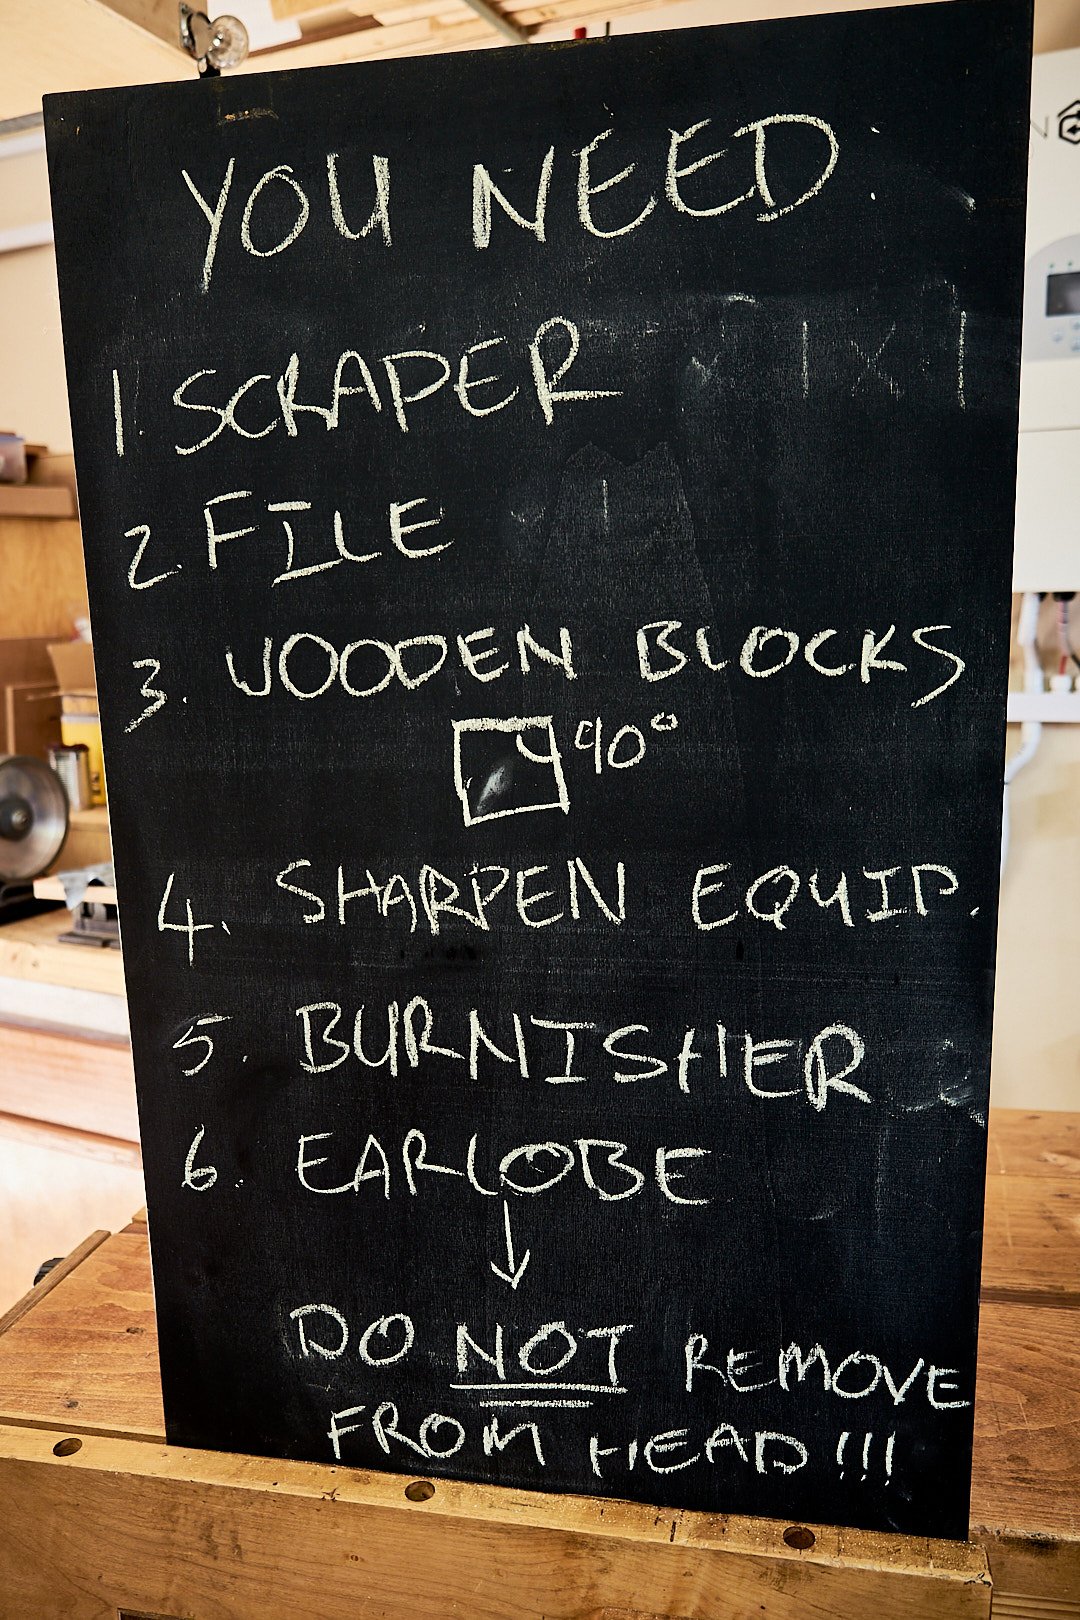 YOU NEED:
1. SCRAPER
2. FILE
3. WOODEN BLOCKS
90°
4. SHARPEN EQUIP.
5. BURNISHER
6. EARLOBE
DO NOT REMOVE
FROM HEAD!!!